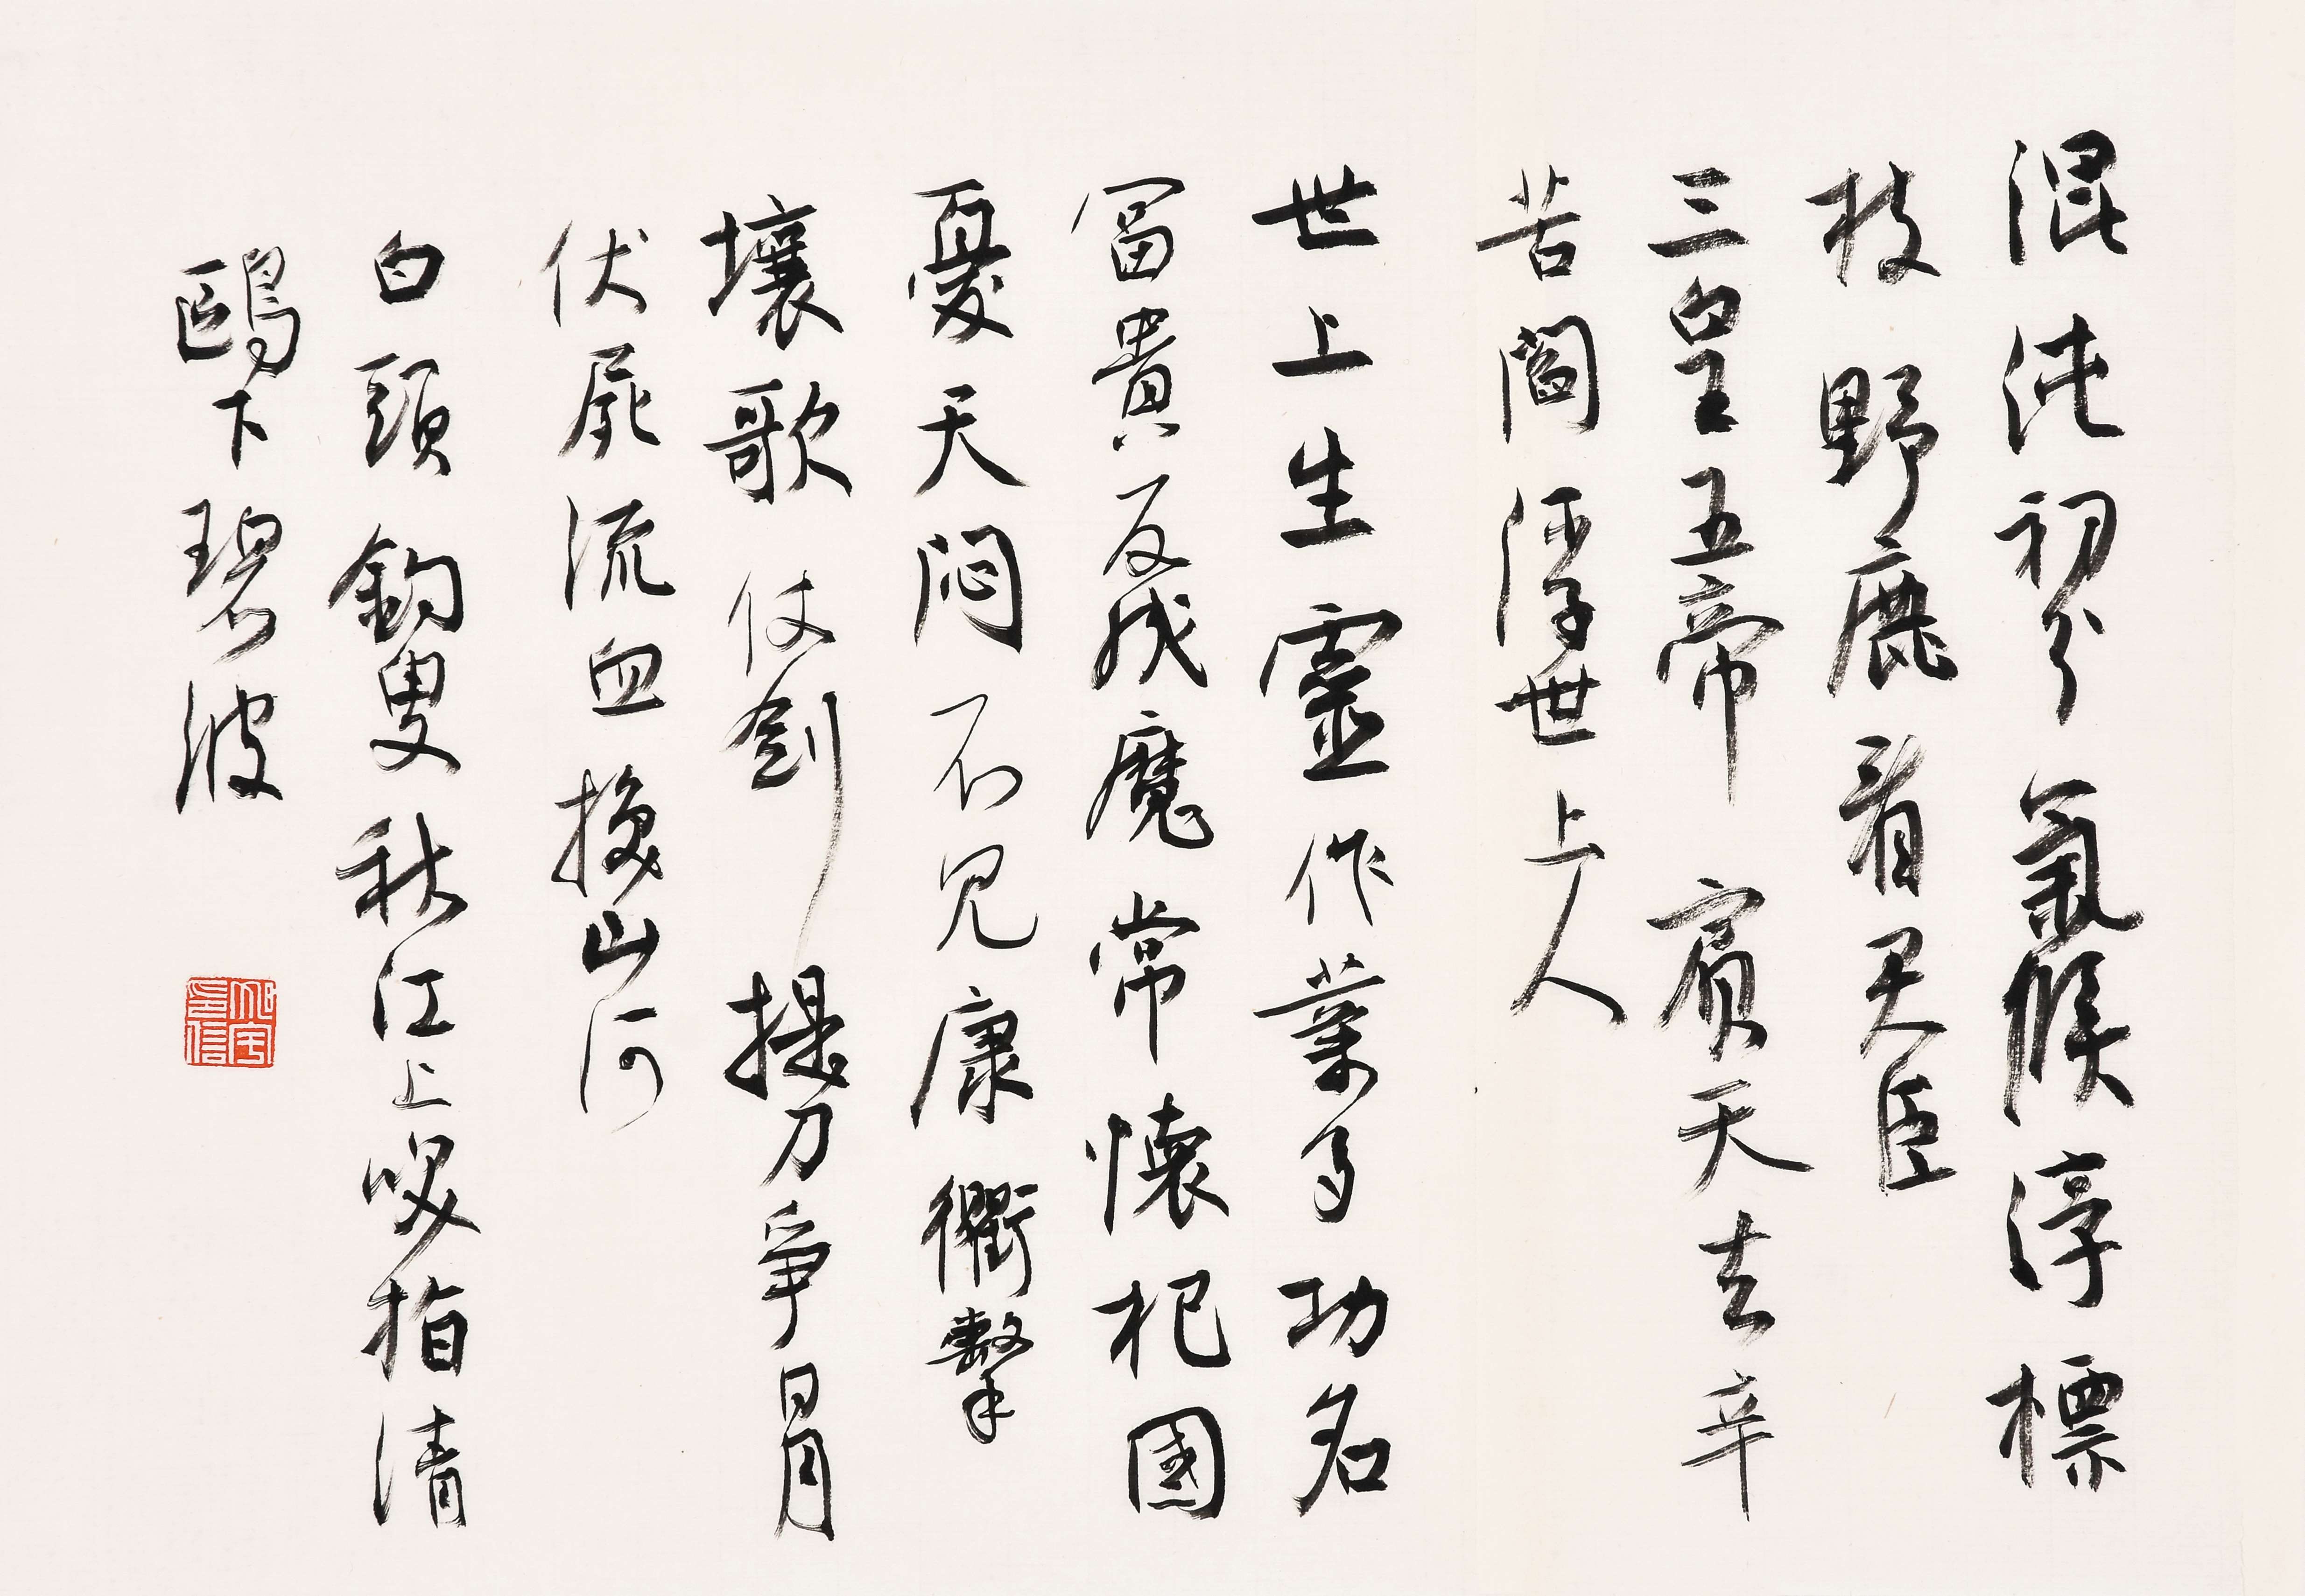 混沌初分氣候淳標
枝野鹿看君臣
三皇五帝賓天去辛
苦閻浮世上人
世上生靈作業多功名
冨貴反成魔常懷杞國
憂天悶不見康衢擊
壤歌仗劍提刀爭日月
伏屍流血換山河
白頭釣叟秋江上咲指清
鷗下碧波